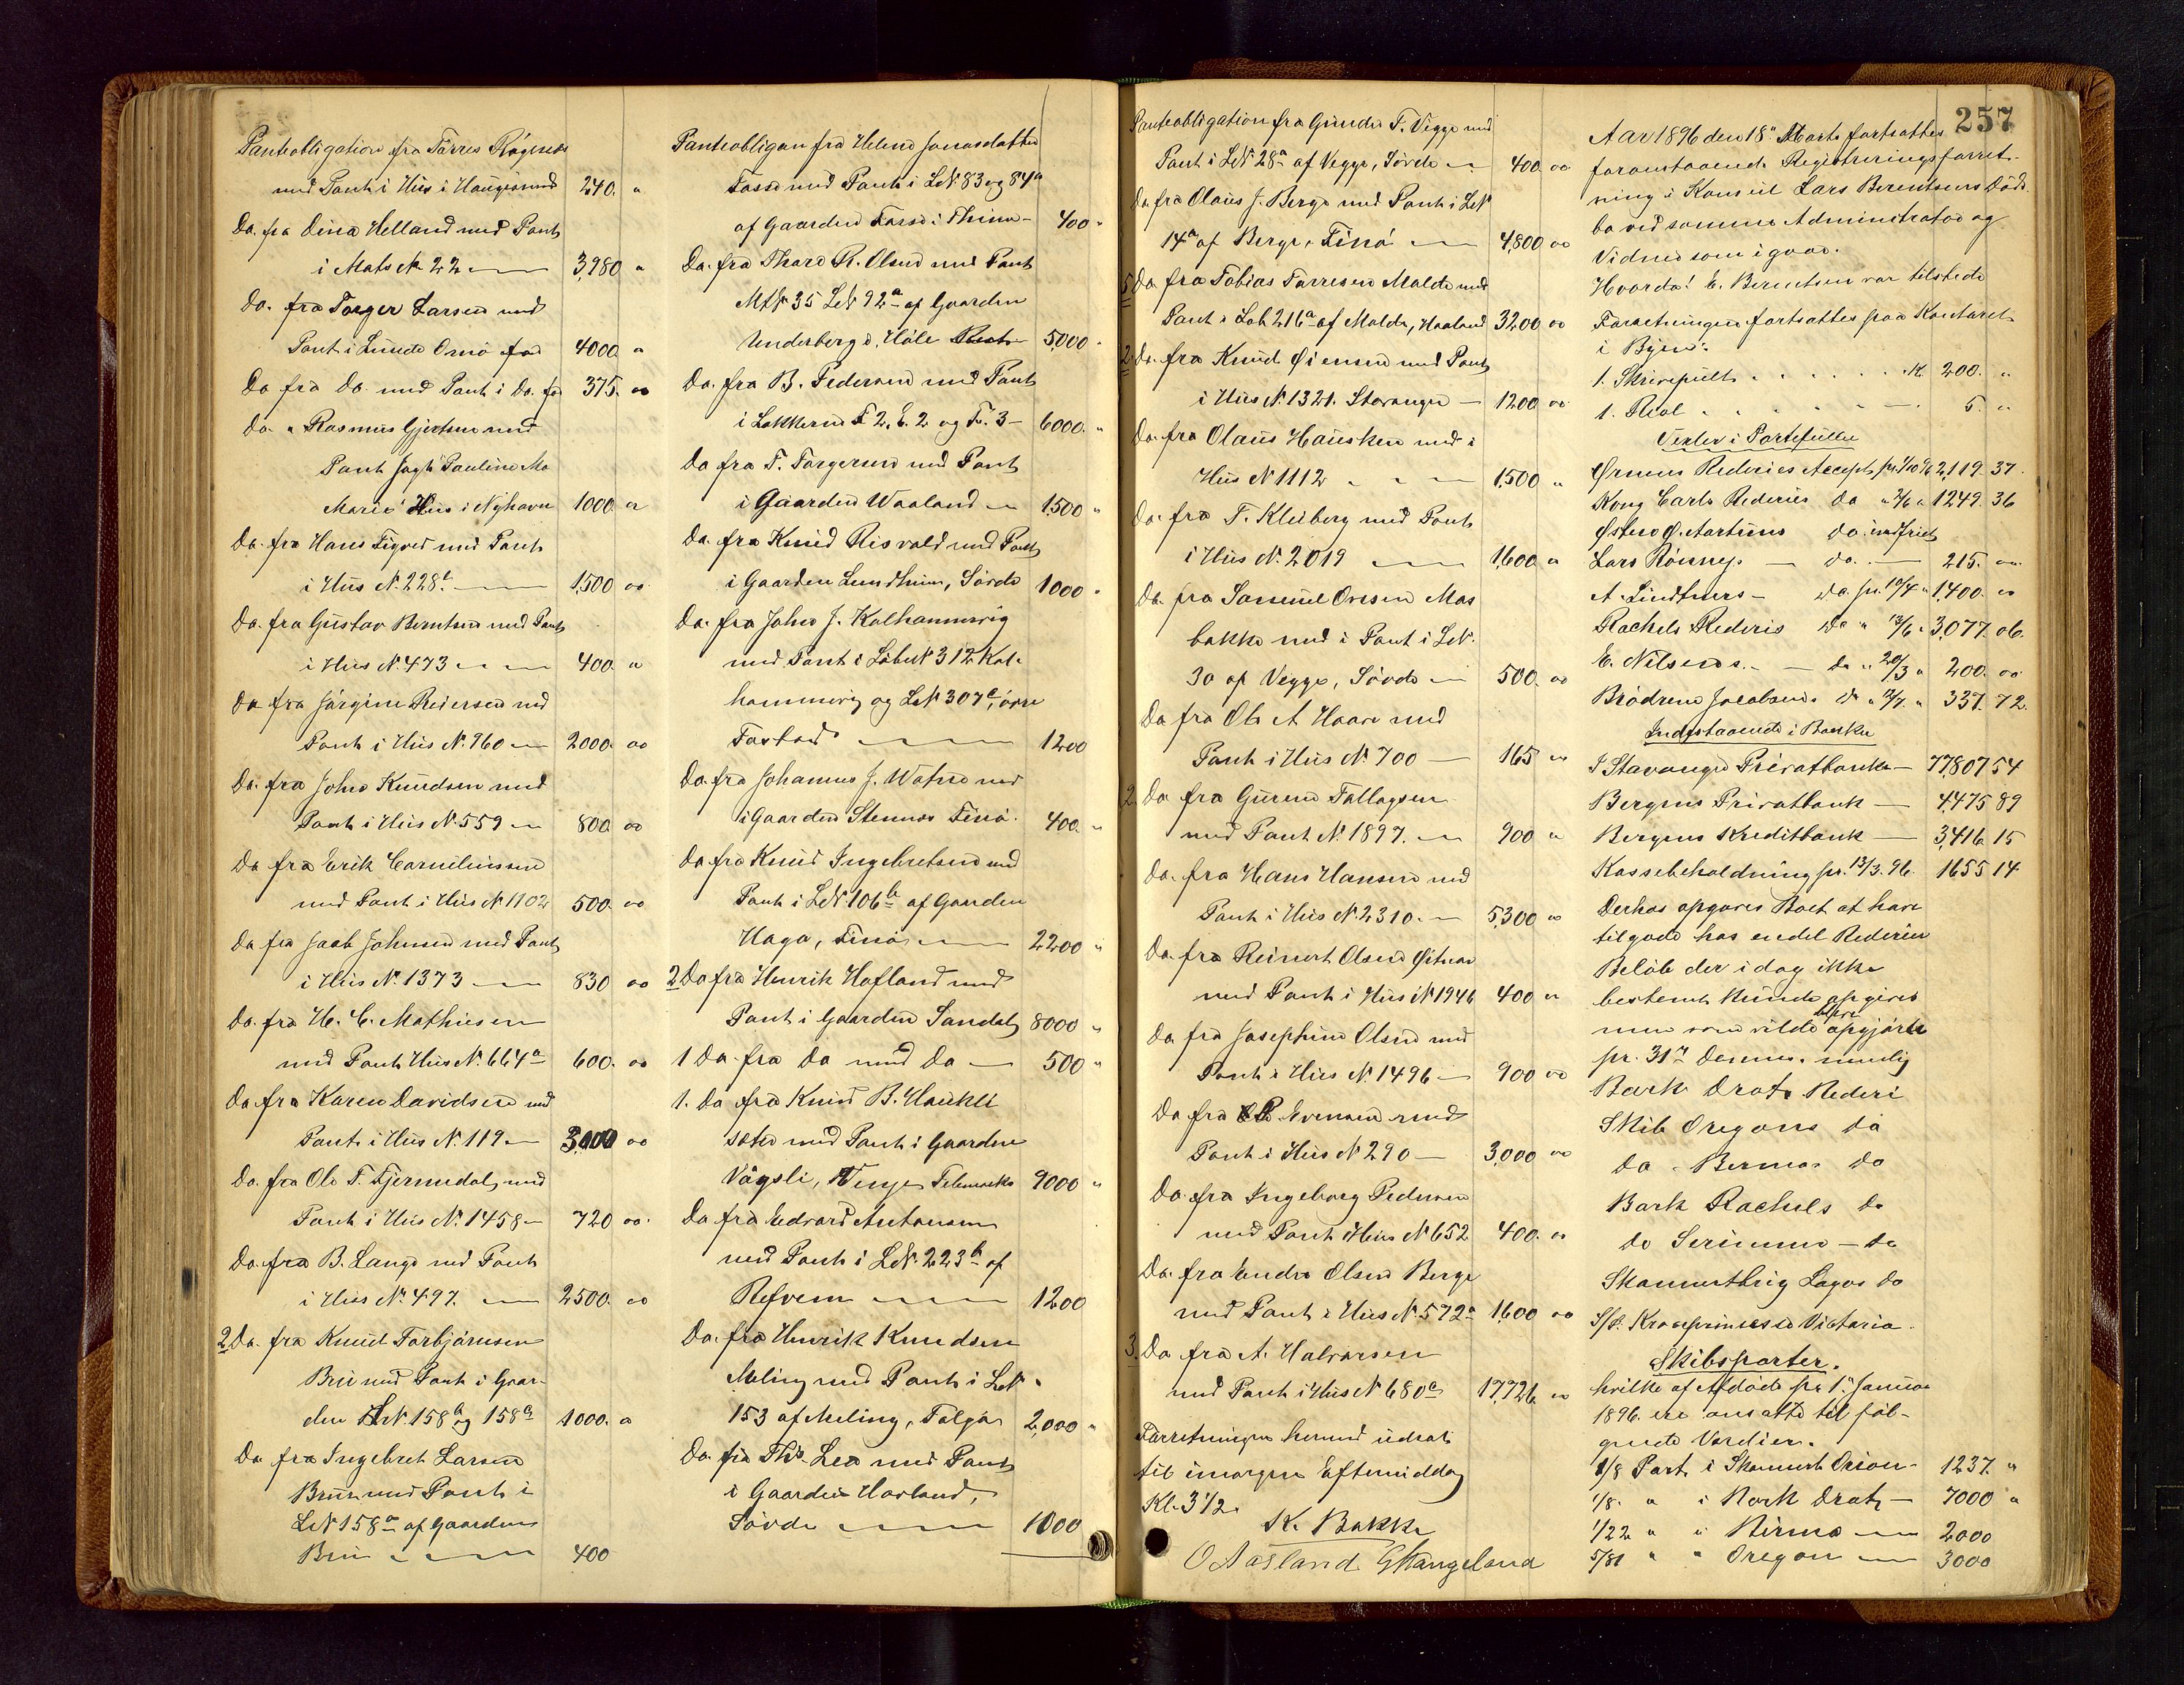 Panteobligation fra Torres Rögenes
med Pant i Hus i Haugesund 240. "
Do. fra Dina Helland med Pant
i Mats No 22 — 3,980 "
Do. fra Torger Larsen med
Pant i Lunde Omö for 4000 "
Do fra Do. med Pant i Do. for 375. oo
Do " Rasmus Gjertsen med
Pant Jagt Pauline Ma
Marie Hus i Nyhavn 1000 "
Do. fra Hans Tigved med Pant
i Hus N. 228b — 1,500 oo
Do. fra Gustav Berntsen med Pant
i Hus N. 473 — 400. "
Do fra Jörgine Reiersen med
Pant i Hus N. 960 — 2000. oo
Do. fra John Knudsen med
Pant i Hus N. 559 — 800. oo
Do fra Erik Corneliussen
med Pant i Hus N. 1102 500. oo
Do fra Jacob Johnsen med Pant
i Hus No 1373 — 830 oo
Do. fra H. C. Mathiesen
med Pant Hus N. 664a 600. oo
Do. fra Karen Davidsen med
Pant i Hus N. 119 — 3,000 oo
Do. fra Ole T. Tjernedal med
Pant i Hus No. 1458 — 720 oo.
Do. fra B. Lange med Pant
i Hus No. 497. — 2500. oo
2 Do. fra Knud Torbjörnsen
Bru med Pant i Gaar-
den LN. 158b og 158c 1000. "
Do. fra Ingebret Larsen
Bru med Pant i
LN 158a af Gaarden
Bru — 400
Panteobligan fra Helene Jonasdatter
Fosse med Pant i LN. 83 og 84a
af Gaarden Fosse i Thime — 400 "
Do. fra Thore R. Olsen med Pant
MtN 35 LN 92a af Gaarden
Underberge, Höle 5,000 "
Do. fra B. Pedersen med Pant
i Lakkerne F 2, E. 2 og F. 3 — 6000. "
Do fra T. Torgersen med Pant
i Gaarden Waaland — 1,500 "
Do. fra Knud Risvold med Pant
i Gaarden Lundheim, Sövde 1000 "
Do. fra John J. Kolhammervig
med Pant i LöbeN 312 Kol-
hammervig og LN. 307a, övre
Tostad — 1200
Do. fra Johannes J. Watne med
i Gaarden Stennes Finö. 400. "
Do fra Knud Ingebretsen med
Pant i LN. 106b af Gaarden
Haga, Finö — 2200 "
2 Do fra Henrik Hofland med
Pant i Gaarden Sandal 8000 "
1 Do. fra Do med Do — 500 "
1. Do fra Knud B. Haukli
sæter med Pant i Gaarden
Vågsli, Vinje Telemarken 9000 "
Do fra Edvard Antonsen
med Pant i LN. 223b af
Refvem — 1200
Do. fra Henrik Knudsen
Meling med Pant i LN.
153 af Meling, Talgö 2,000 "
Do. fra Ths. Lea med Pant
i Gaarden Hovland,
Sövde — 1000
Panteobligation fra Gunder T. Vegge med
Pant i LN. 28a af Vegge, Sövde — 400. oo
Do fra Olaus J. Berge med Pant i LN
14a af Berge, Finö — 4,800 oo
5 Do fra Tobias Torresen Malde med
Pant i Lob 216a af Malde, Haaland 3200 oo
2 Do. fra Knud Öiensen med Pant
i Hus N. 1321. Stavanger — 1200 oo
Do. fra Olaus Hausken med i
Hus N 1112 — 1,500 "
Do. fra T. Kleiberg med Pant
i Hus N. 2019 — 1,600 "
Do. fra Samuel Ovesen Mos
bakke med i Pant i LN.
30 af Vegge, Sövde — 500. oo
Do fra Ole A Haare med
Pant i Hus N. 700 — 165 "
2. Do fra Gureno Tollagsen
med Pant N. 1897. — 900 "
Do. fra Hans Hansen med
Pant i Hus N. 2310. — 5,300 oo
Do. fra Reinert Olsen Østnes
med Pant i Hus N 1946 400 "
Do fra Josephine Olsen med
Pant i Hus N. 1496 — 900 oo
Do fra P. Evensen med
Pant i Hus N 290 — 3,000 oo
Do. fra Ingeborg Pedersen
med Pant i Hus N 652 400. "
Do. fra Endre Olsen Berge
med Pant i Hus N. 572a 1,600 oo
3. Do fra A. Halvorsen
med Pant i Hus N 680a 17,726 "
Forretningen hermed udsat
til imorgen Eftermiddag
Kl. 3 1/2.
K. Bakke
O Aasland G Hangeland
257
Aar 1896 den 18de Marts fortsattes
foranstaaende Registreringsforret-
ning i Konsul Lars Berentsens Döds-
bo ved samme Administrator og
Vidner som igaar.
Hvorda! E. Berentsen var tilstede
Forretningen fortsattes paa Kontoret
i Byen.
1. Skrivepult . . . . . K. 200. "
1. Reol . . . . — 5. "
Vexler i Portefølle
Ørnens Rederies Accept pr. 1/10 96 2,119. 37.
Kong Carls Rederies Do " 2/6 " 1249. 36
Østen Ø. Aartuns do. indfriet
Lars Rönney. — Do. — 215. oo
A. Lindtners — Do. pr. 10/4 " 1,400. oo
Rachels Rederis Do " 13/6 " 3,077. 06.
E. Nilsens. — Do " 20/3 " 200. oo
Brödrene Jacobsens Do " 2/7. " 337. 72.
Indestaaende i Banker
I Stavanger Privatbank — 77,807 54
Bergens Privatbank — 4,475 89
Bergens Kreditbank — 3,416 15
Kassebeholdning pr. 13/3. 96. 1655 14
Derhos opgaves Boet at have
tilgode hos endel Rederier
Belöb der i dag ikke
bestemt kunde opgives
men som vilde blive opgjorte
pr. 31te Dennes. nemlig
Bark Drots Rederi
Skib Oregons do
do " Birmas do
Bark Rachels do
do Serinnes — do
Skonnertbrig Lagos do
S/S. Kronprinsesse Victoria.
Skibsparter.
hvilke af Afdöde pr. 1ste Januar
1896. ere ansatte til föl-
gende Værdier.
1/8 Part i Skonnert Orion. 1237. "
1/8. " i Bark Drot — 7000 "
1/22 " " Birma — 2000
5/81 " " Oregon — 3000